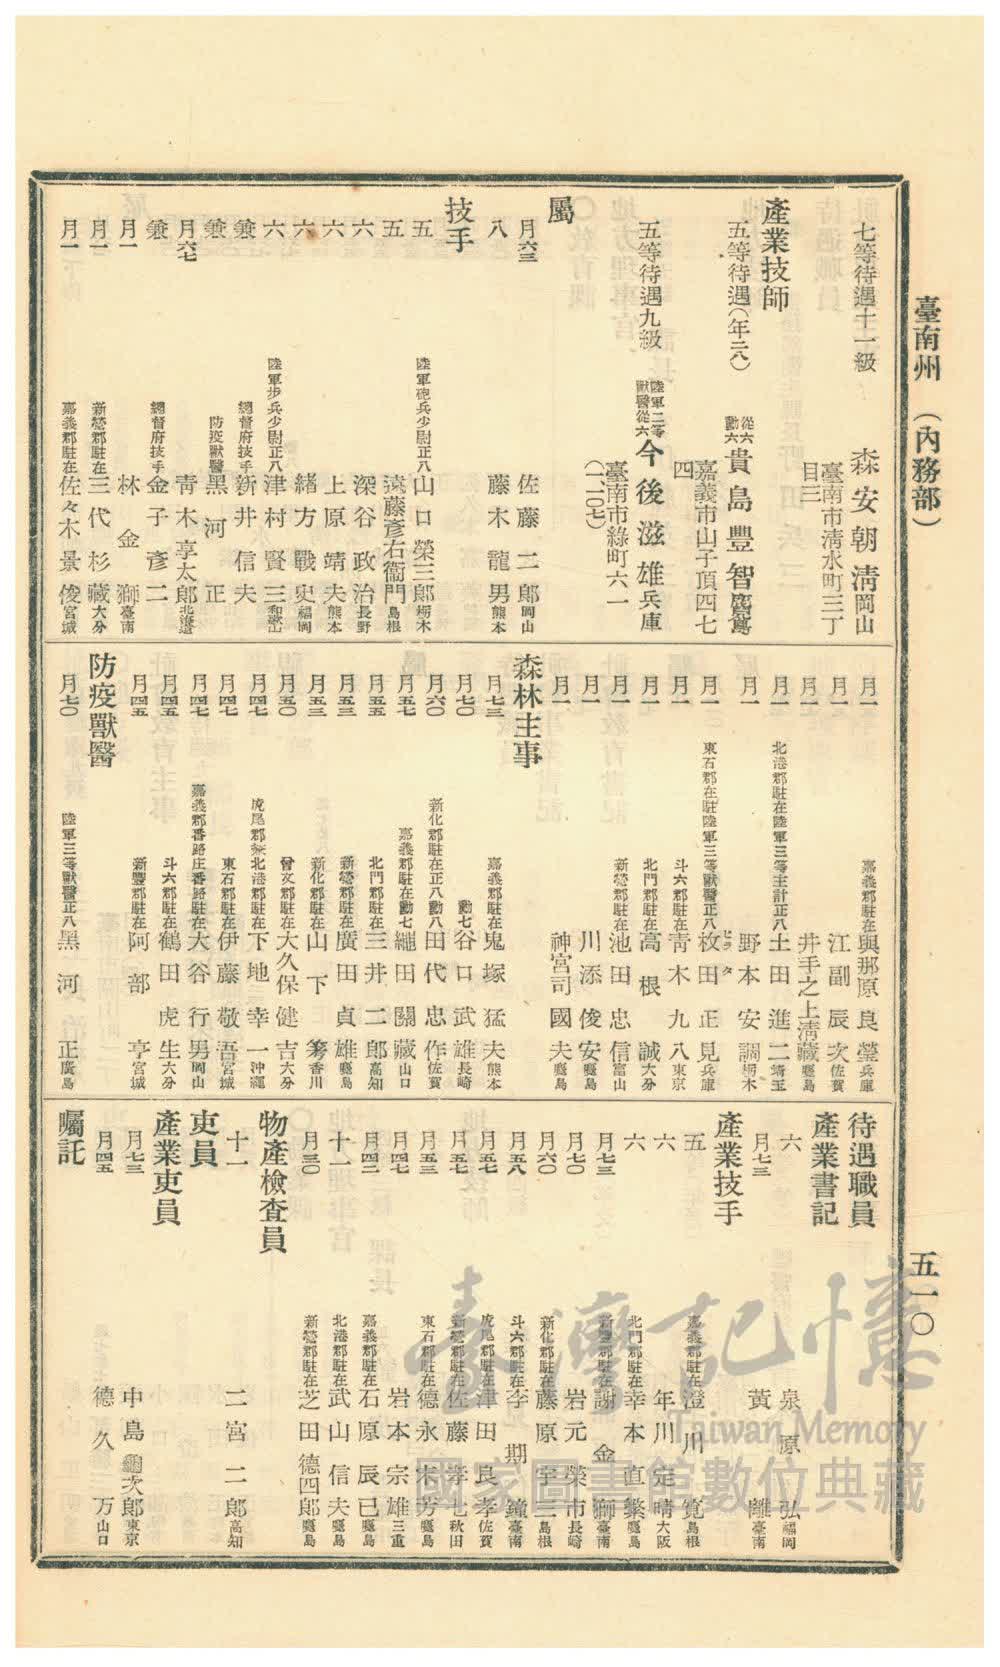 臺南州 (內務部)
五一〇
七等待遇十一級 森安朝淸 岡山
臺南市淸水町三丁
目三
產業技師
五等待遇(年二八) 從六勳六 貴島豐智 鹿兒島
嘉義市山子頂四七
四
五等待遇九級 陸軍二等獸醫從六 今後滋雄 兵庫
臺南市綠町六一
(一、二〇七)
屬
月六三 佐藤二郎 岡山
八 藤木龍男 熊本
技手
五 陸軍砲兵少尉正八 山口榮三郎 栃木
五 遠藤彥右衞門 島根
六 深谷政治 長野
六 上原靖夫 熊本
六 緒方戰史 福岡
六 陸軍步兵少尉正八 津村賢三 和歌山
兼 總督府技手 新井信夫
兼 防疫獸醫 黑河正
月六七 靑木享太郎 北海道
兼 總督府技手 金子彥二
月一 林金獅 臺南
月一 新營郡駐在 三代杉藏 大分
月一 嘉義郡駐在 佐々木景俊 宮城
月一 嘉義郡駐在 與那原良瑩 兵庫
月一 江副辰次 佐賀
月一 井手之上淸藏 鹿兒島
月一 北港郡駐在陸軍三等主計正八 土田進二 埼玉
月一 野本安調 栃木
月一 東石郡在駐陸軍三等獸醫正八 枚田正見 兵庫
月一 斗六郡駐在 靑木九八 東京
月一 北門郡駐在 高根誠 大分
月一 新營郡駐在 池田忠信 富山
月一 川添俊安 鹿兒島
月一 神宮司國夫 鹿兒島
森林主事
月七三 嘉義郡駐在 鬼塚猛夫 熊本
月七〇 勳七 谷口武雄 長崎
月六〇 新化郡駐在正八勳八 田代忠作 佐賀
月五七 嘉義郡駐在勳七 繩田關藏 山口
月五五 北門郡駐在 三井二郎 高知
月五三 新營郡駐在 廣田貞雄 鹿兒島
月五三 新化郡駐在 山下籌 香川
月五〇 曾文郡駐在 大久保健吉 大分
月四七 虎尾郡兼北港郡駐在 下地幸一 沖繩
月四七 東石郡駐在 伊藤敬吾 宮城
月四七 嘉義郡番路庄番路駐在 大谷行男 岡山
月四五 斗六郡駐在 鶴田虎生 大分
月四五 新豐郡駐在 阿部亨 宮城
防疫獸醫
月七〇 陸軍三等獸醫正八 黑河正 廣島
待遇職員
產業書記
六 泉原弘 福岡
月七三 黃離 臺南
產業技手
五 嘉義郡駐在 澄川寬 島根
六 年川定晴 大阪
六 北門郡駐在 幸本直繁 鹿兒島
月七三 新豐郡駐在 謝金獅 臺南
月七〇 岩元榮市 長崎
月六〇 新化郡駐在 藤原宇三 島根
月五八 斗六郡駐在 李期鐘 臺南
月五七 虎尾郡駐在 津田良孝 佐賀
月五七 新營郡駐在 佐藤孝七 秋田
月五三 東石郡駐在 德永末芳 鹿兒島
月四七 岩本宗雄 三重
月四二 嘉義郡駐在 石原辰已 鹿兒島
十一 北港郡駐在 武山信夫 鹿兒島
月三〇 新營郡駐在 芝田德四郎 鹿兒島
物產檢查員
十一 二宮二郎 高知
吏員
產業吏員
月七三 中島次郎 東京
囑託
月四五 德久万 山口
臺灣記憶
Taiwan Memory
國家圖書館數位典藏